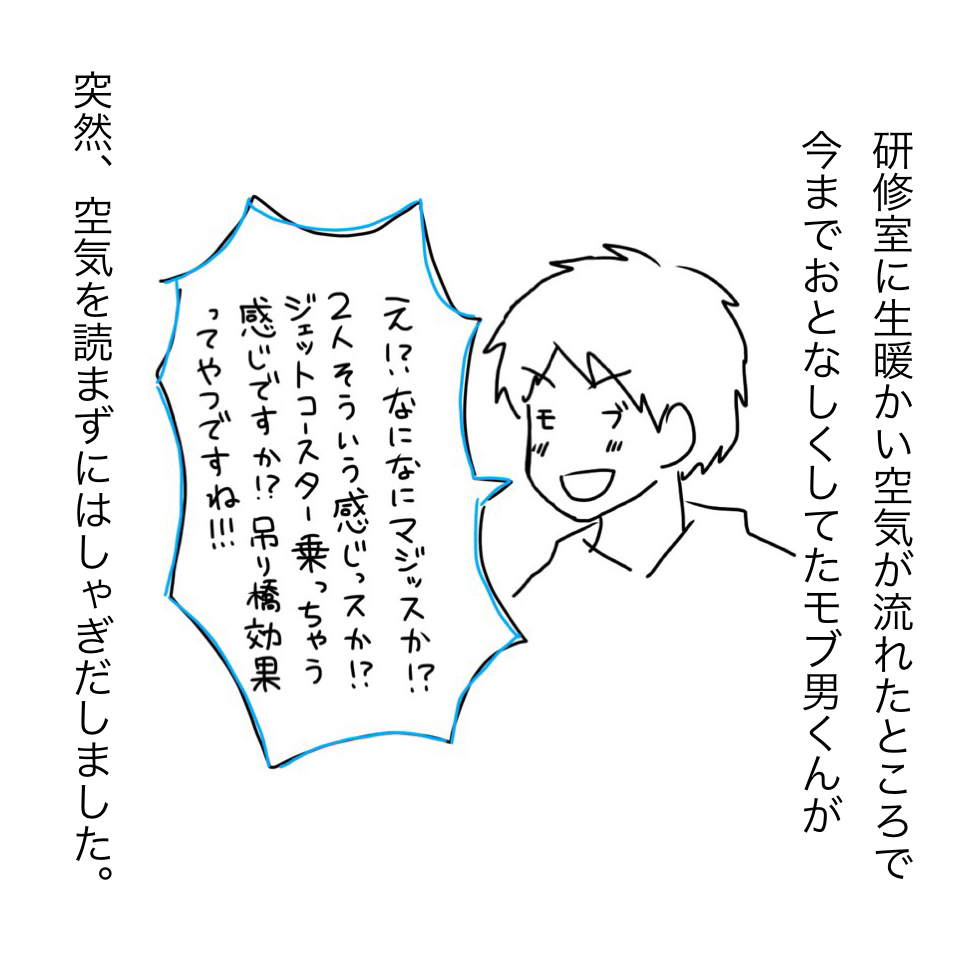 研修室に生暖かい空気が流れたところで
今までおとなしくしてたモブ男くんが
モブ
え!?なになにマジッスか!?
2人そういう感じっスか!?
ジェットコースター乗っちゃう
感じですか!?吊り橋効果
ってやつですね!!!
突然、空気を読まずにはしゃぎだしました。